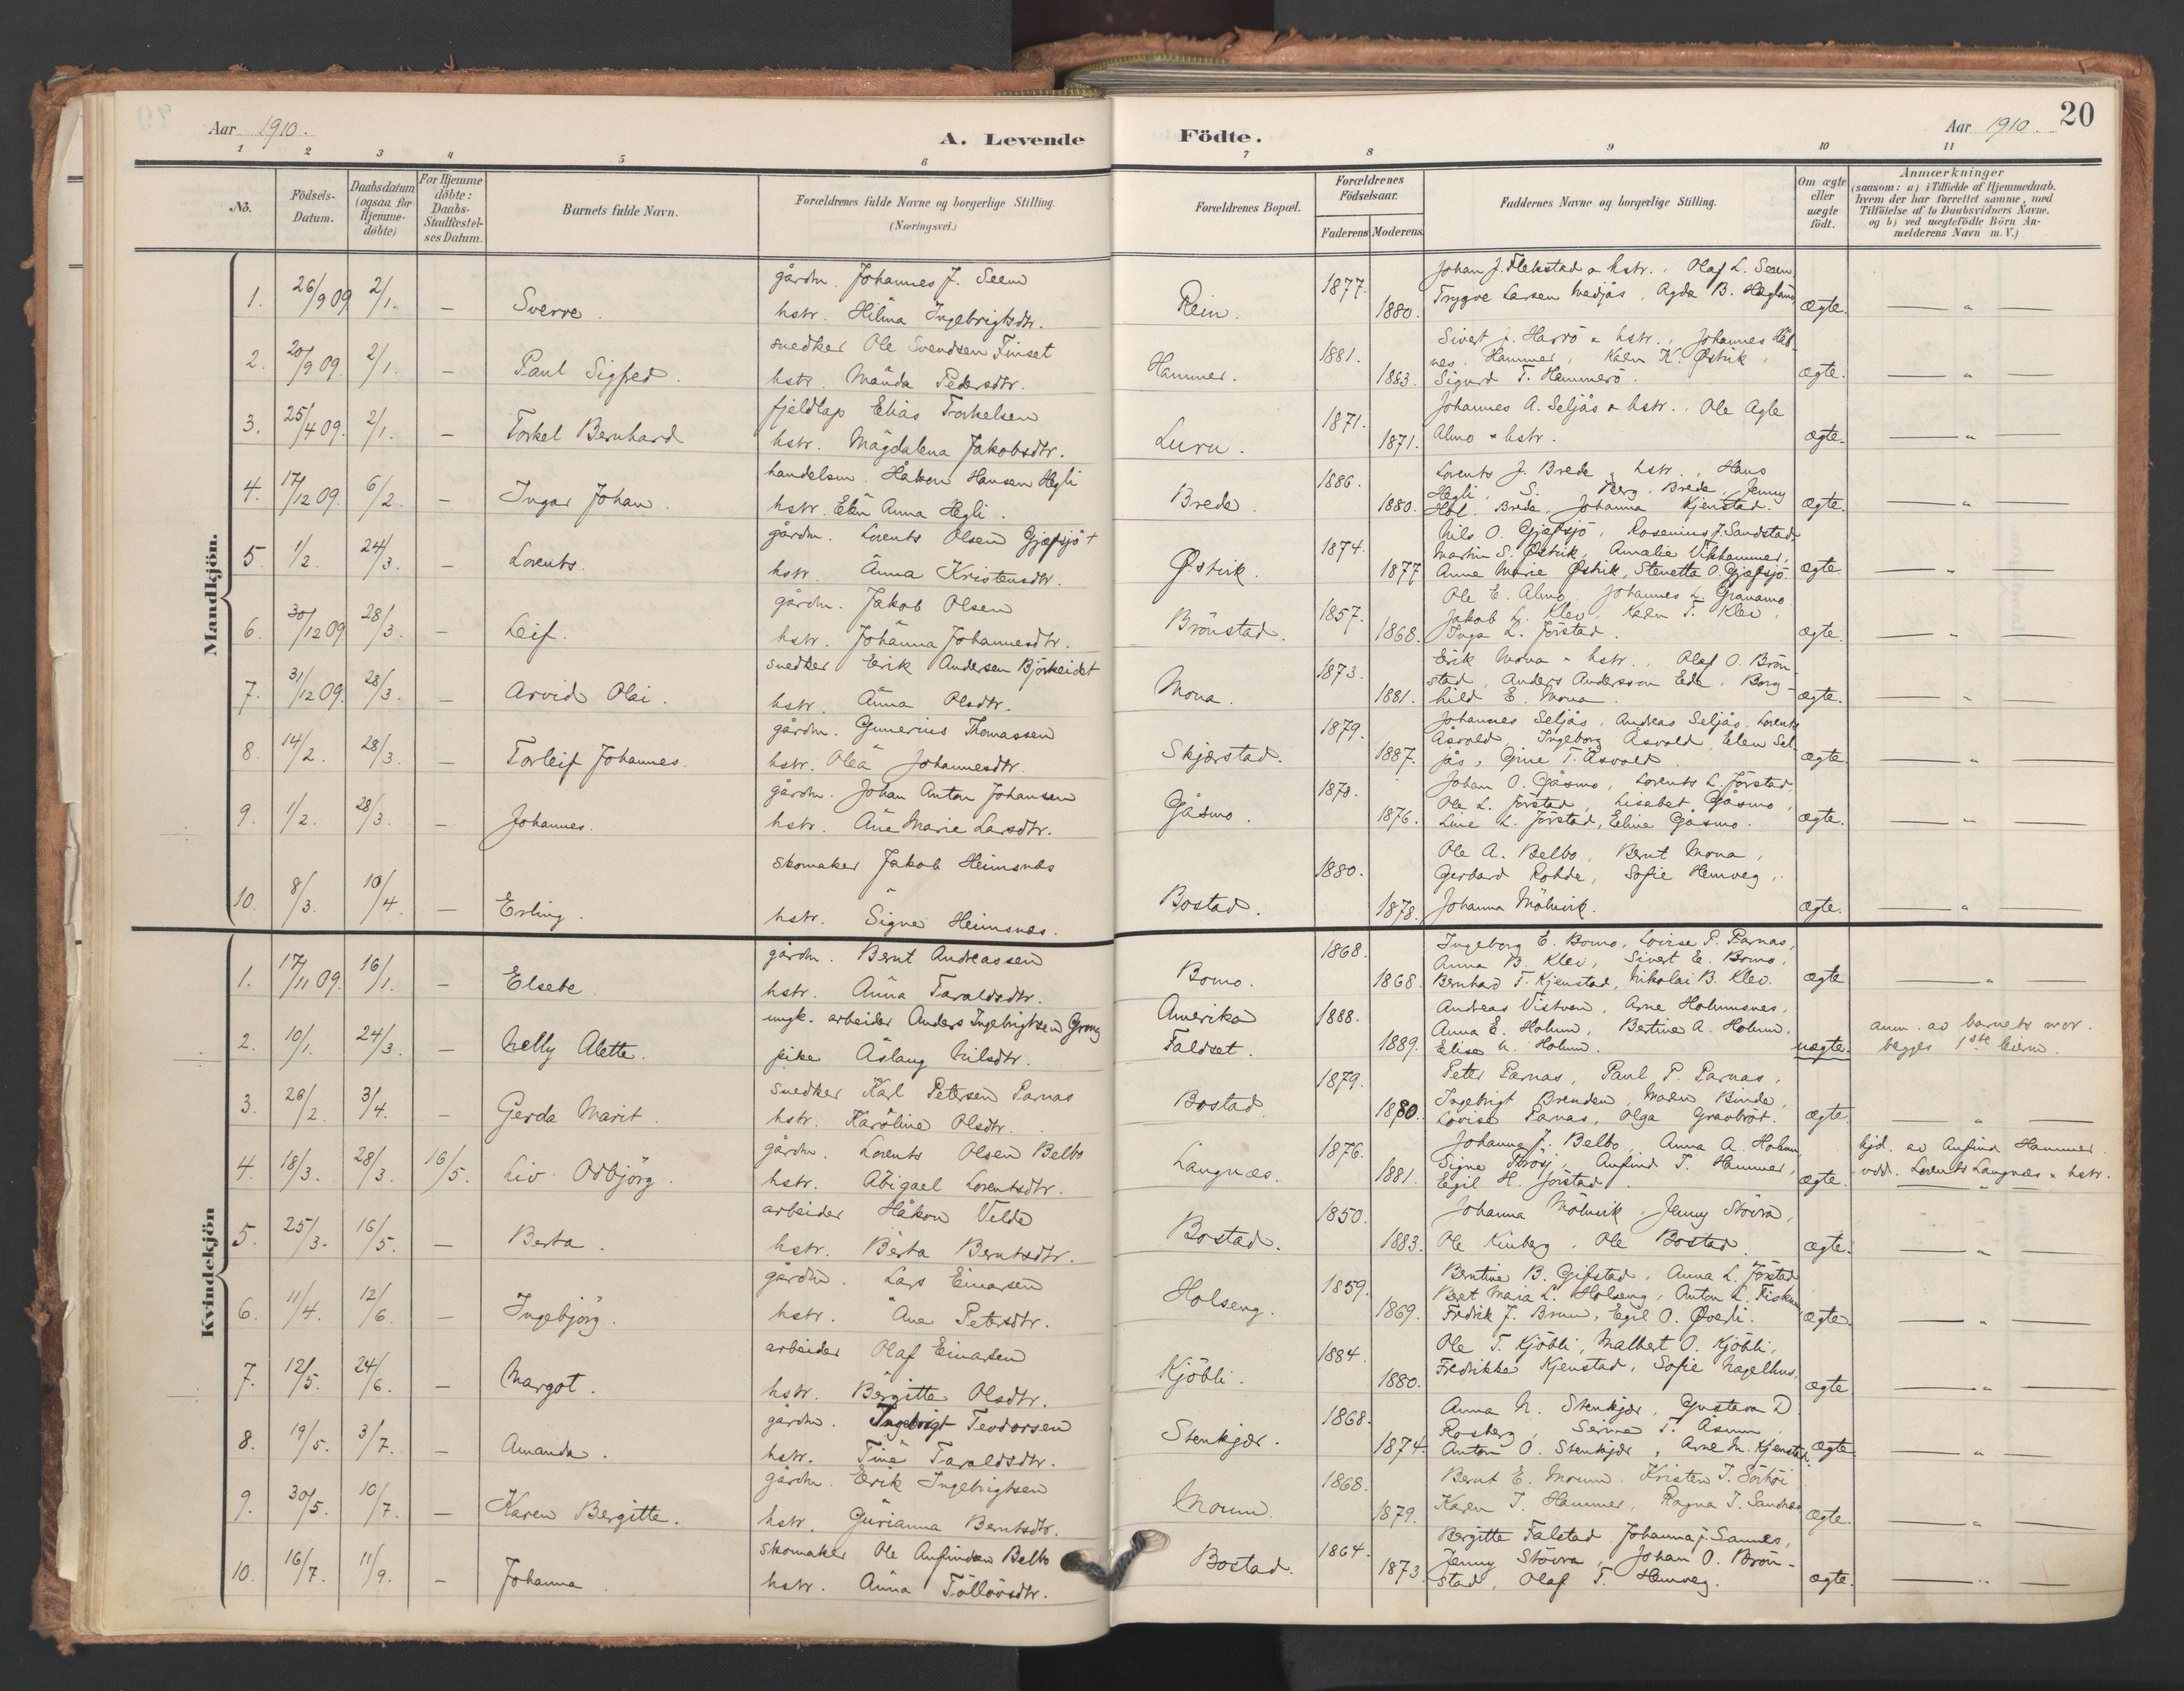 Aar 1910.
A. Levende Födte.
Aar 1910. 20
1 2 3 4 5 6 7 8 9 10 11
No.
Födsels-Datum.
Daabsdatum (ogsaa for Hjemme-döbte)
For Hjemme döbte: Daabs-Stadfæstel-ses Datum.
Barnets fulde Navn.
Forældrenes fulde Navne og borgerlige Stilling. (Næringsvei.)
Forældrenes Bopæl.
Forældrenes Födselsaar.
Faderens Moderens
Faddernes Navne og borgerlige Stilling.
Om ægte eller uægte födt.
Anmærkninger
(saasom: a) i Tilfælde af Hjemmedaab.
hvem der har forrettet samme, med
Tilföielse af to Daabsvidners Navne.
og b) ved uægtefödte Börn An-
melderens Navn m. V.)
Mandkjön.
1. 26/9 09 2/1. — Sverre.
gårdm. Johannes J. Seem
hstr. Hilma Ingebrigtsdtr.
Rein. 1877. 1880.
Johan J. Flekstad & hstr., Olaf L. Seem,
Trygve Larsen Medjås, Agda B. Hagland
ægte. — " —
2. 20/9 09. 2/1. — Paul Sigfred.
snedker Ole Svendsen Finset
hstr. Manda Pedersdtr.
Hammer. 1881. 1883.
Sivert J. Harrö & hstr., Johannes
Hammer, Karen K. Østvik,
Sigurd T. Hammerö.
ægte. — " —
3. 25/4 09. 2/1. — Torkel Bernhard
fjeldlap Elias Torkelsen
hstr. Magdalena Jakobsdtr.
Luru. 1871. 1871.
Johannes A. Seljås & hstr., Ole Agle
Almo & hstr.
ægte. — " —
4. 17/12 09. 6/2. — Ingar Johan.
handelsm. Håkon Hansen Hegli
hstr. Elen Anna Hegli.
Brede. 1886. 1880.
Lorents J. Brede & hstr., Hans
Hegli, S. Berg, Brede, Jenny
Brede, Johanna Kjenstad.
ægte. — " —
5. 1/2. 24/3. — Lorents.
gårdm. Lorents Olsen Gjæfsjö +
hstr. Anna Kristensdtr.
Østvik. 1874. 1877
Nils O. Gjæfsjö, Rosenius J. Sandstad,
Martin S. Østvik, Amalie Vikhammer,
Anne Marie Østvik, Stenetta O. Gjæfsjö.
ægte. — " —
6. 30/12 09 28/3. — Leif.
gårdm. Jakob Olsen
hstr. Johanna Johannesdtr.
Brönstad. 1857. 1868.
Ole E. Almo, Johannes L. Granamo
Jakob L. Klev, Karen T. Klev,
Inga L. Jörstad.
ægte. — " —
7. 31/12 09. 28/3. — Arvid Olai.
snedker Erik Andersen Björkeidet
hstr. Anna Olsdtr.
Mona. 1873. 1881.
Erik Mona & hstr., Olaf O. Brön-
stad, Anders Andersson Ede, Borg-
hild E. Mona.
ægte. — " —
8. 14/2. 28/3. — Torleif Johannes.
gårdm. Gunerius Thomassen
hstr. Olea Johannesdtr.
Skjærstad. 1879. 1887.
Johannes Seljås, Andreas Seljås, Lorents
Åsvold, Ingeborg Åsvold, Elen Sel-
jås, Gine T. Åsvold.
ægte. — " —
9. 1/2. 28/3. — Johannes.
gårdm. Johan Anton Johansen
hstr. Ane Marie Larsdtr.
Gåsmo. 1878. 1876.
Johan O. Gåsmo, Lorents L. Jörstad,
Ole L. Jörstad, Lisabet Gåsmo,
Line L. Jörstad, Eline Gåsmo.
ægte. — " —
10. 8/3. 10/4. — Erling.
skomaker Jakob Heimsnes
hstr. Signe Heimsnes.
Bostad. 1880. 1878.
Ole A. Belbo, Bernt Mona,
Gerhard Rohde, Sofie Hemveg,
Johanna Mölnvik.
ægte. — " —
Kvindekjön
1. 17/11 09. 16/1. — Elsebe.
gårdm. Bernt Andreassen
hstr. Anna Taraldsdtr.
Bomo. 1868. 1868.
Ingeborg E. Bomo, Lovise P. Parnas,
Anna B. Klev, Sivert E. Bomo,
Bernhard T. Kjenstad, Nikolai B. Klev.
ægte — " —
2. 10/1. 24/3. — Nelly Alette.
ungk. arbeider Anders Ingebrigtsen Grong
pike Åslaug Nilsdtr.
Amerika Faldset. 1888. 1889.
Andreas Vistven, Arne Holumsnes,
Anna E. Holum, Bertine A. Holum,
Elise N. Holum.
uægte. anm. av barnets mor.
begges 1ste leierm.
3. 26/2. 3/4. — Gerda Marit.
snedker Karl Petersen Parnas
hstr. Karoline Olsdtr.
Bostad. 1879. 1880.
Peter Parnas, Paul P. Parnas,
Ingebrigt Brenden, Maren Binde,
Lovise Parnas, Olga Gravbröt.
ægte. — " —
4. 18/3. 28/3. 16/5. Liv Odbjörg.
gårdm. Lorents Olsen Belbo
hstr. Abigael Lorentsdtr.
Langnæs. 1876. 1881.
Johanna J. Belbo, Anna A. Holum
Signe, Anfind T. Hammer,
Egil H. Jörstad.
ægte. hjd. av Anfind Hammer.
vdd. Lorents Langnæs & hstr.
5. 25/3. 16/5. — Berta.
arbeider Håkon Velde
hstr. Berta Berntsdtr.
Bostad. 1850. 1883.
Johanna Mölnvik, Jenny Stövra,
Ole Kinberg, Ole Bostad.
ægte. — " —
6. 11/4. 12/6. — Ingebjörg.
gårdm. Lars Einarsen
hstr. Ane Petersdtr.
Holseng. 1859. 1869.
Berntine B. Gifstad, Anna L. Jörstad
Beret Maria L. Holseng, Anton L. Fiskum,
Fredrik J. Brunn, Egil O. Øverli.
ægte. — " —
7. 12/5. 24/6. — Margot.
arbeider Olaf Einarsen
hstr. Bergitte Olsdtr.
Kjöbli. 1884. 1880.
Ole T. Kjöbli, Malbert O. Kjöbli,
Fredrikke Kjenstad, Sofie Nagelhus.
ægte — " —
8. 19/5. 3/7. — Amanda.
gårdm. Ingebrigt Teodorsen
hstr. Tine Taraldsdtr.
Stenkjær. 1868. 1874.
Anna N. Stenkjær, Gustava D.
Rosberg, Serine T. Åsum,
Anton O. Stenkjær, Arne M. Kjenstad
ægte. — " —
9. 30/5. 10/7. — Karen Bergitte.
gårdm. Erik Ingebrigtsen
hstr. Gurianna Berntsdtr.
Moum. 1868. 1879.
Bernt E. Moum, Kristen J.
Karen J. Hammer, Ragna J. Sandnes
ægte. — " —
10. 16/7. 11/9. — Johanna.
skomaker Ole Anfindsen Belbo
hstr. Anna Tollövsdtr.
Bostad. 1864. 1873.
Bergitte Falstad, Johanna J. Sannes,
Jenny Stövra, Johan O. Brön-
stad, Olaf T. Hemveg.
ægte. — " —